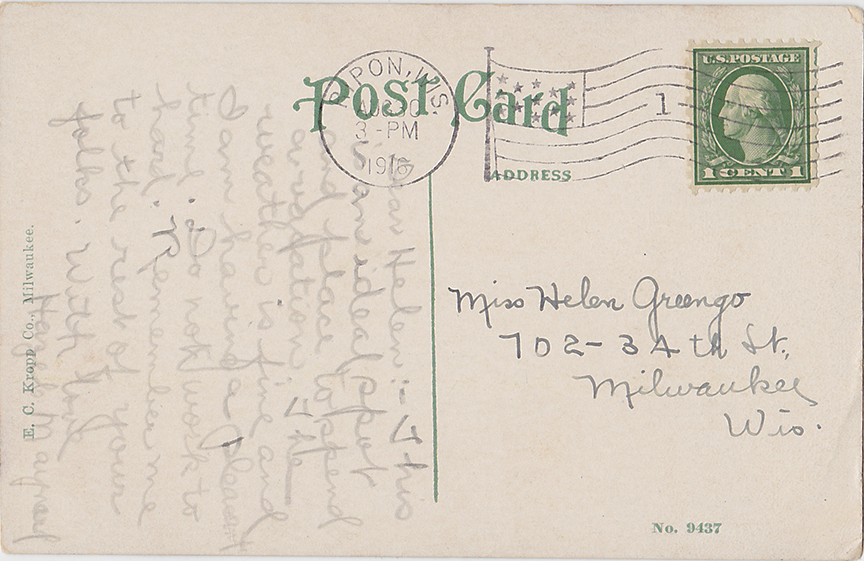 Post Card
RIPON, WIS.
AUG 30
3-PM
1
U.S. POSTAGE
1 CENT 1
ADDRESS
Dear Helen:- This
is an ideal spot
and place to spend
a vacation. The
weather is fine and
I am having a pleasant
time. Do not work to
hard. Remember me
to the rest of your
folks. With love
Miss Helen Greengo
702-34th St.,
Milwaukee
Wis.
E. C. Kropp Co., Milwaukee.
No. 9437